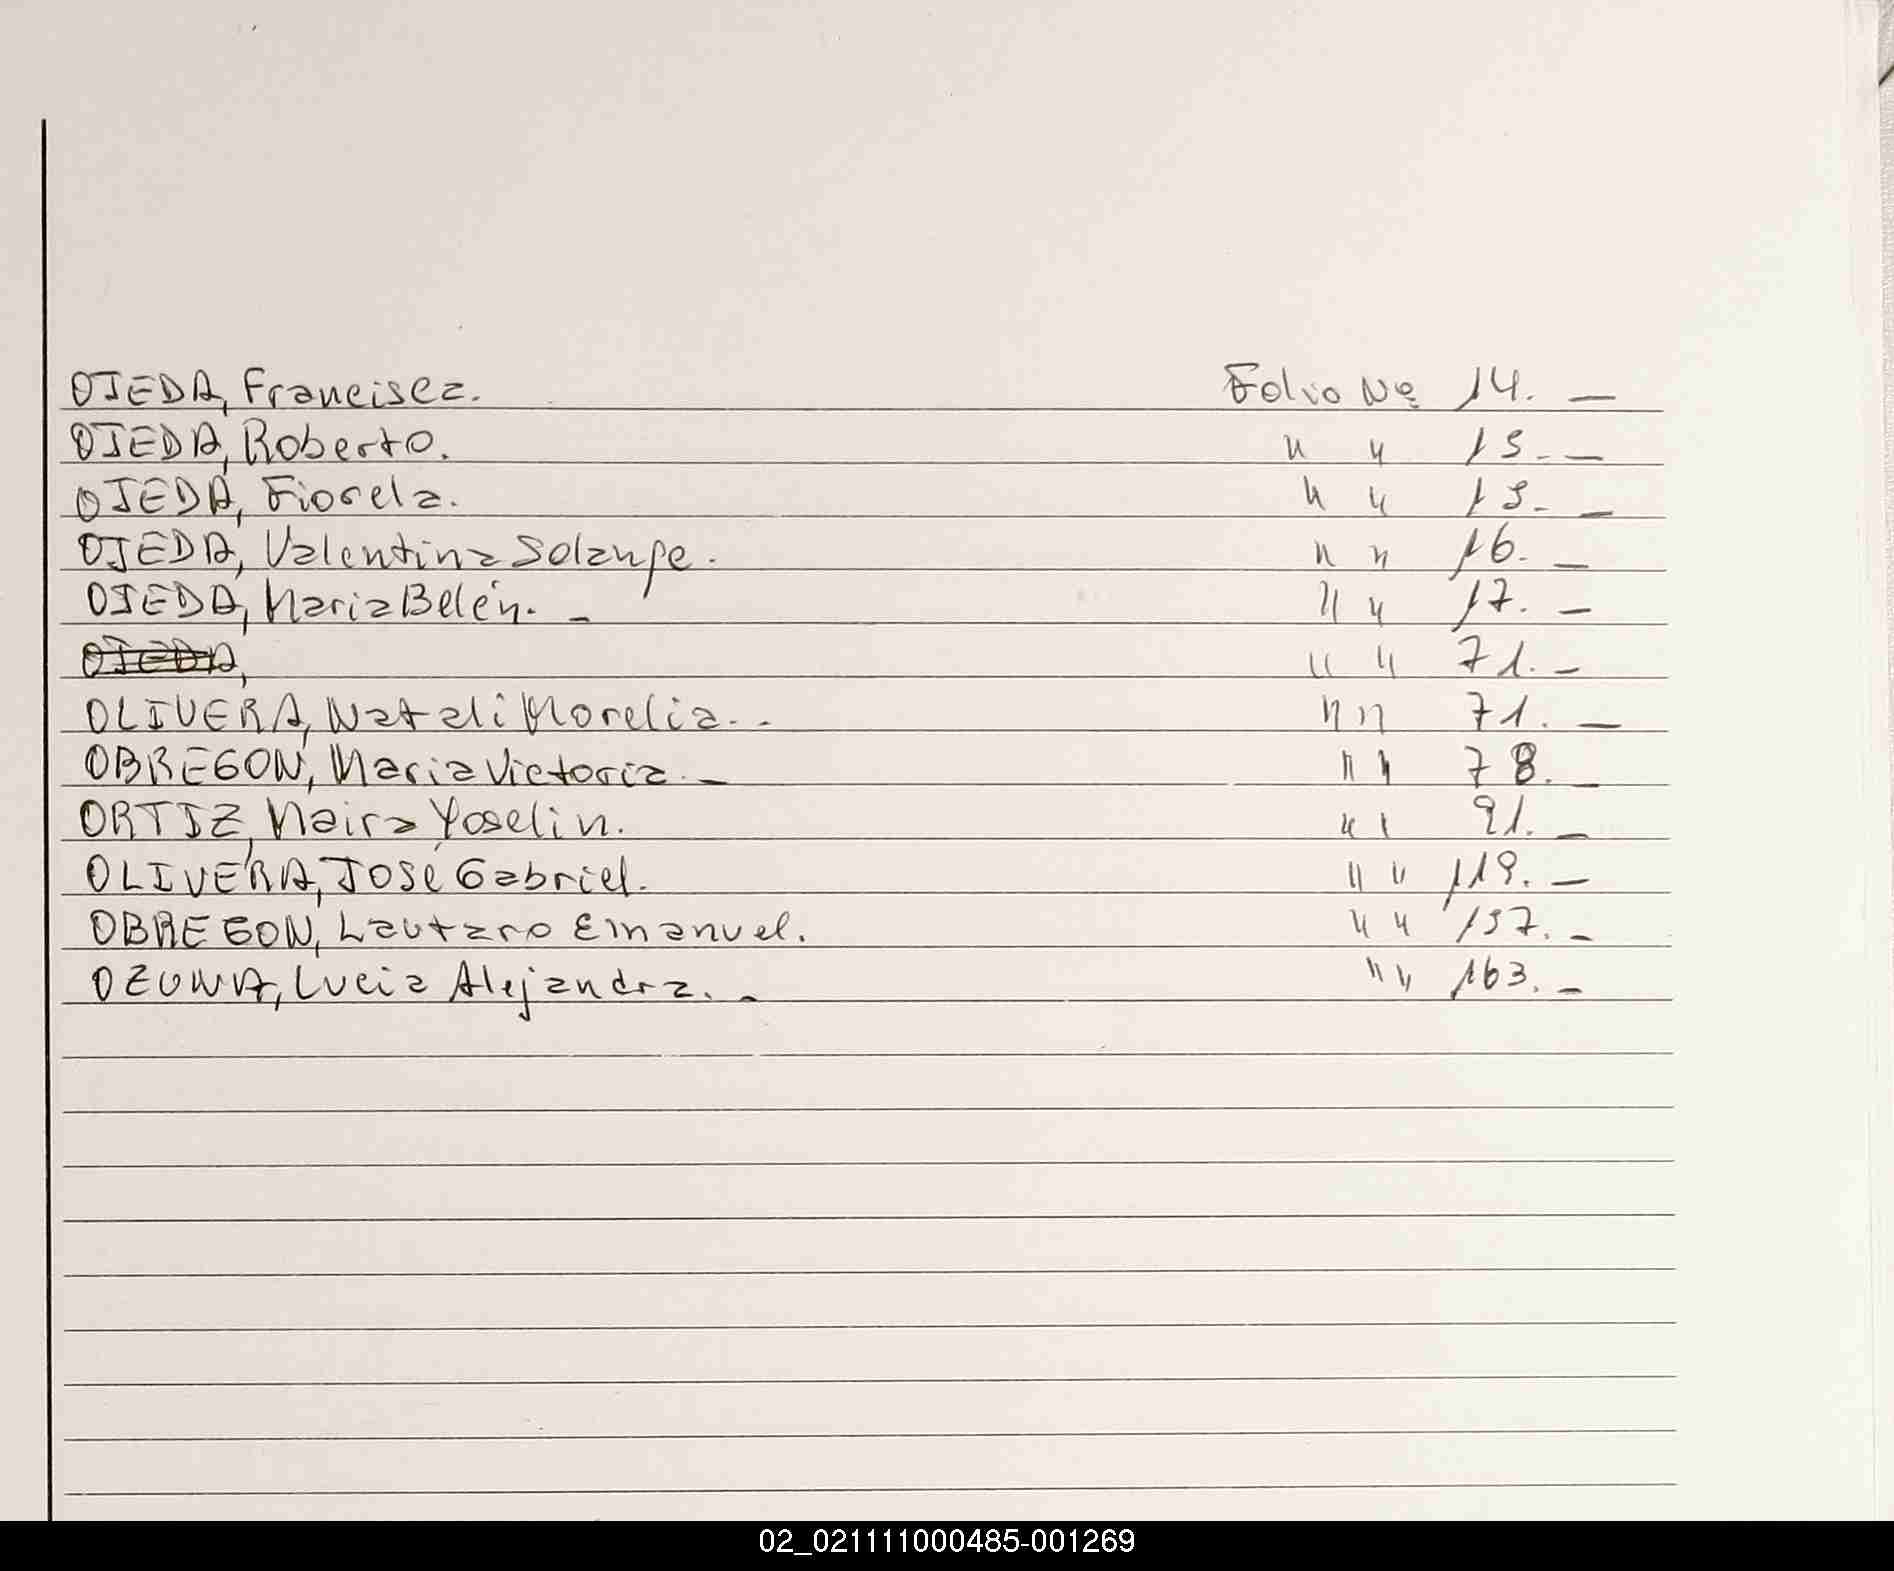 OJEDA, Francisca. Folio Nº 14. —
OJEDA, Roberto. " " 15. —
OJEDA, Fiorela. " " 15. —
OJEDA, Valentina Solange. " " 16. —
OJEDA, Maria Belén. — " " 17. —
OJEDA, " " 71. —
OLIVERA, Natali Morelia. - " " 71. —
OBREGON, Maria Victoria. — " " 78. —
ORTIZ, Maira Yoselin. " " 91. —
OLIVERA, José Gabriel. " " 119. —
OBREGON, Lautaro Emanuel. " " 137. —
OZUNA, Lucia Alejandra. — " " 163. —
02_021111000485-001269